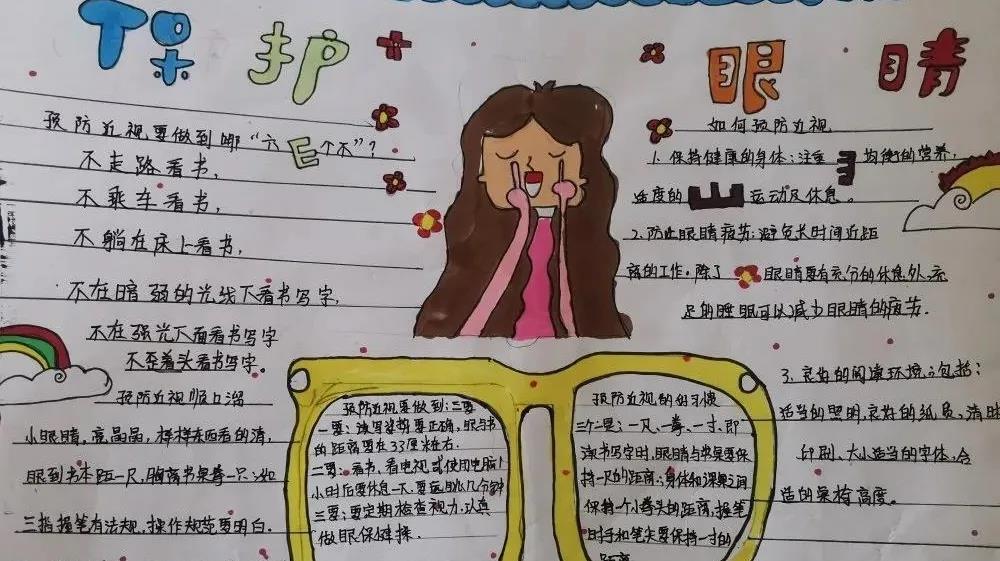 保护 眼睛
预防近视,要做到哪“六个不”?
不走路看书,
不乘车看书,
不躺在床上看书,
不在暗弱的光线下看书写字,
不在强光下面看书写字
不歪着头看书写字。
预防近视顺口溜
小眼睛,亮晶晶,样样东西看的清,
眼到书本距一尺,胸离书桌
三指握笔有法规,操作规范要明白.
预防近视要做到:三要、
一要:读写姿势要正确,眼与书
的距离要在33厘米左右.
二要:看书、看电视或使用电脑1
小时后要休息一下,要远眺几分钟
三要:要定期检查视力,认真
做眼保健操.
预防近视的好习惯
一尺、一拳、一寸.即
读书写字时,眼睛与书桌要保
持一尺的距离,身体和课桌之间
保持一个小拳头的距离,握笔
时手和笔尖要保持一寸的
距离
如何预防近视
1. 保持健康的身体:注意均衡的营养,
适度的运动及休息。
2.防止眼睛疲劳:避免长时间近距
离的工作.除了眼睛要有充分的休息外.充
足的睡眠可以减少眼睛的疲劳.
3. 良好的阅读环境,包括:
适当的照明,良好的纸质、清晰
印刷、大小适当的字体,合
适的桌椅高度。